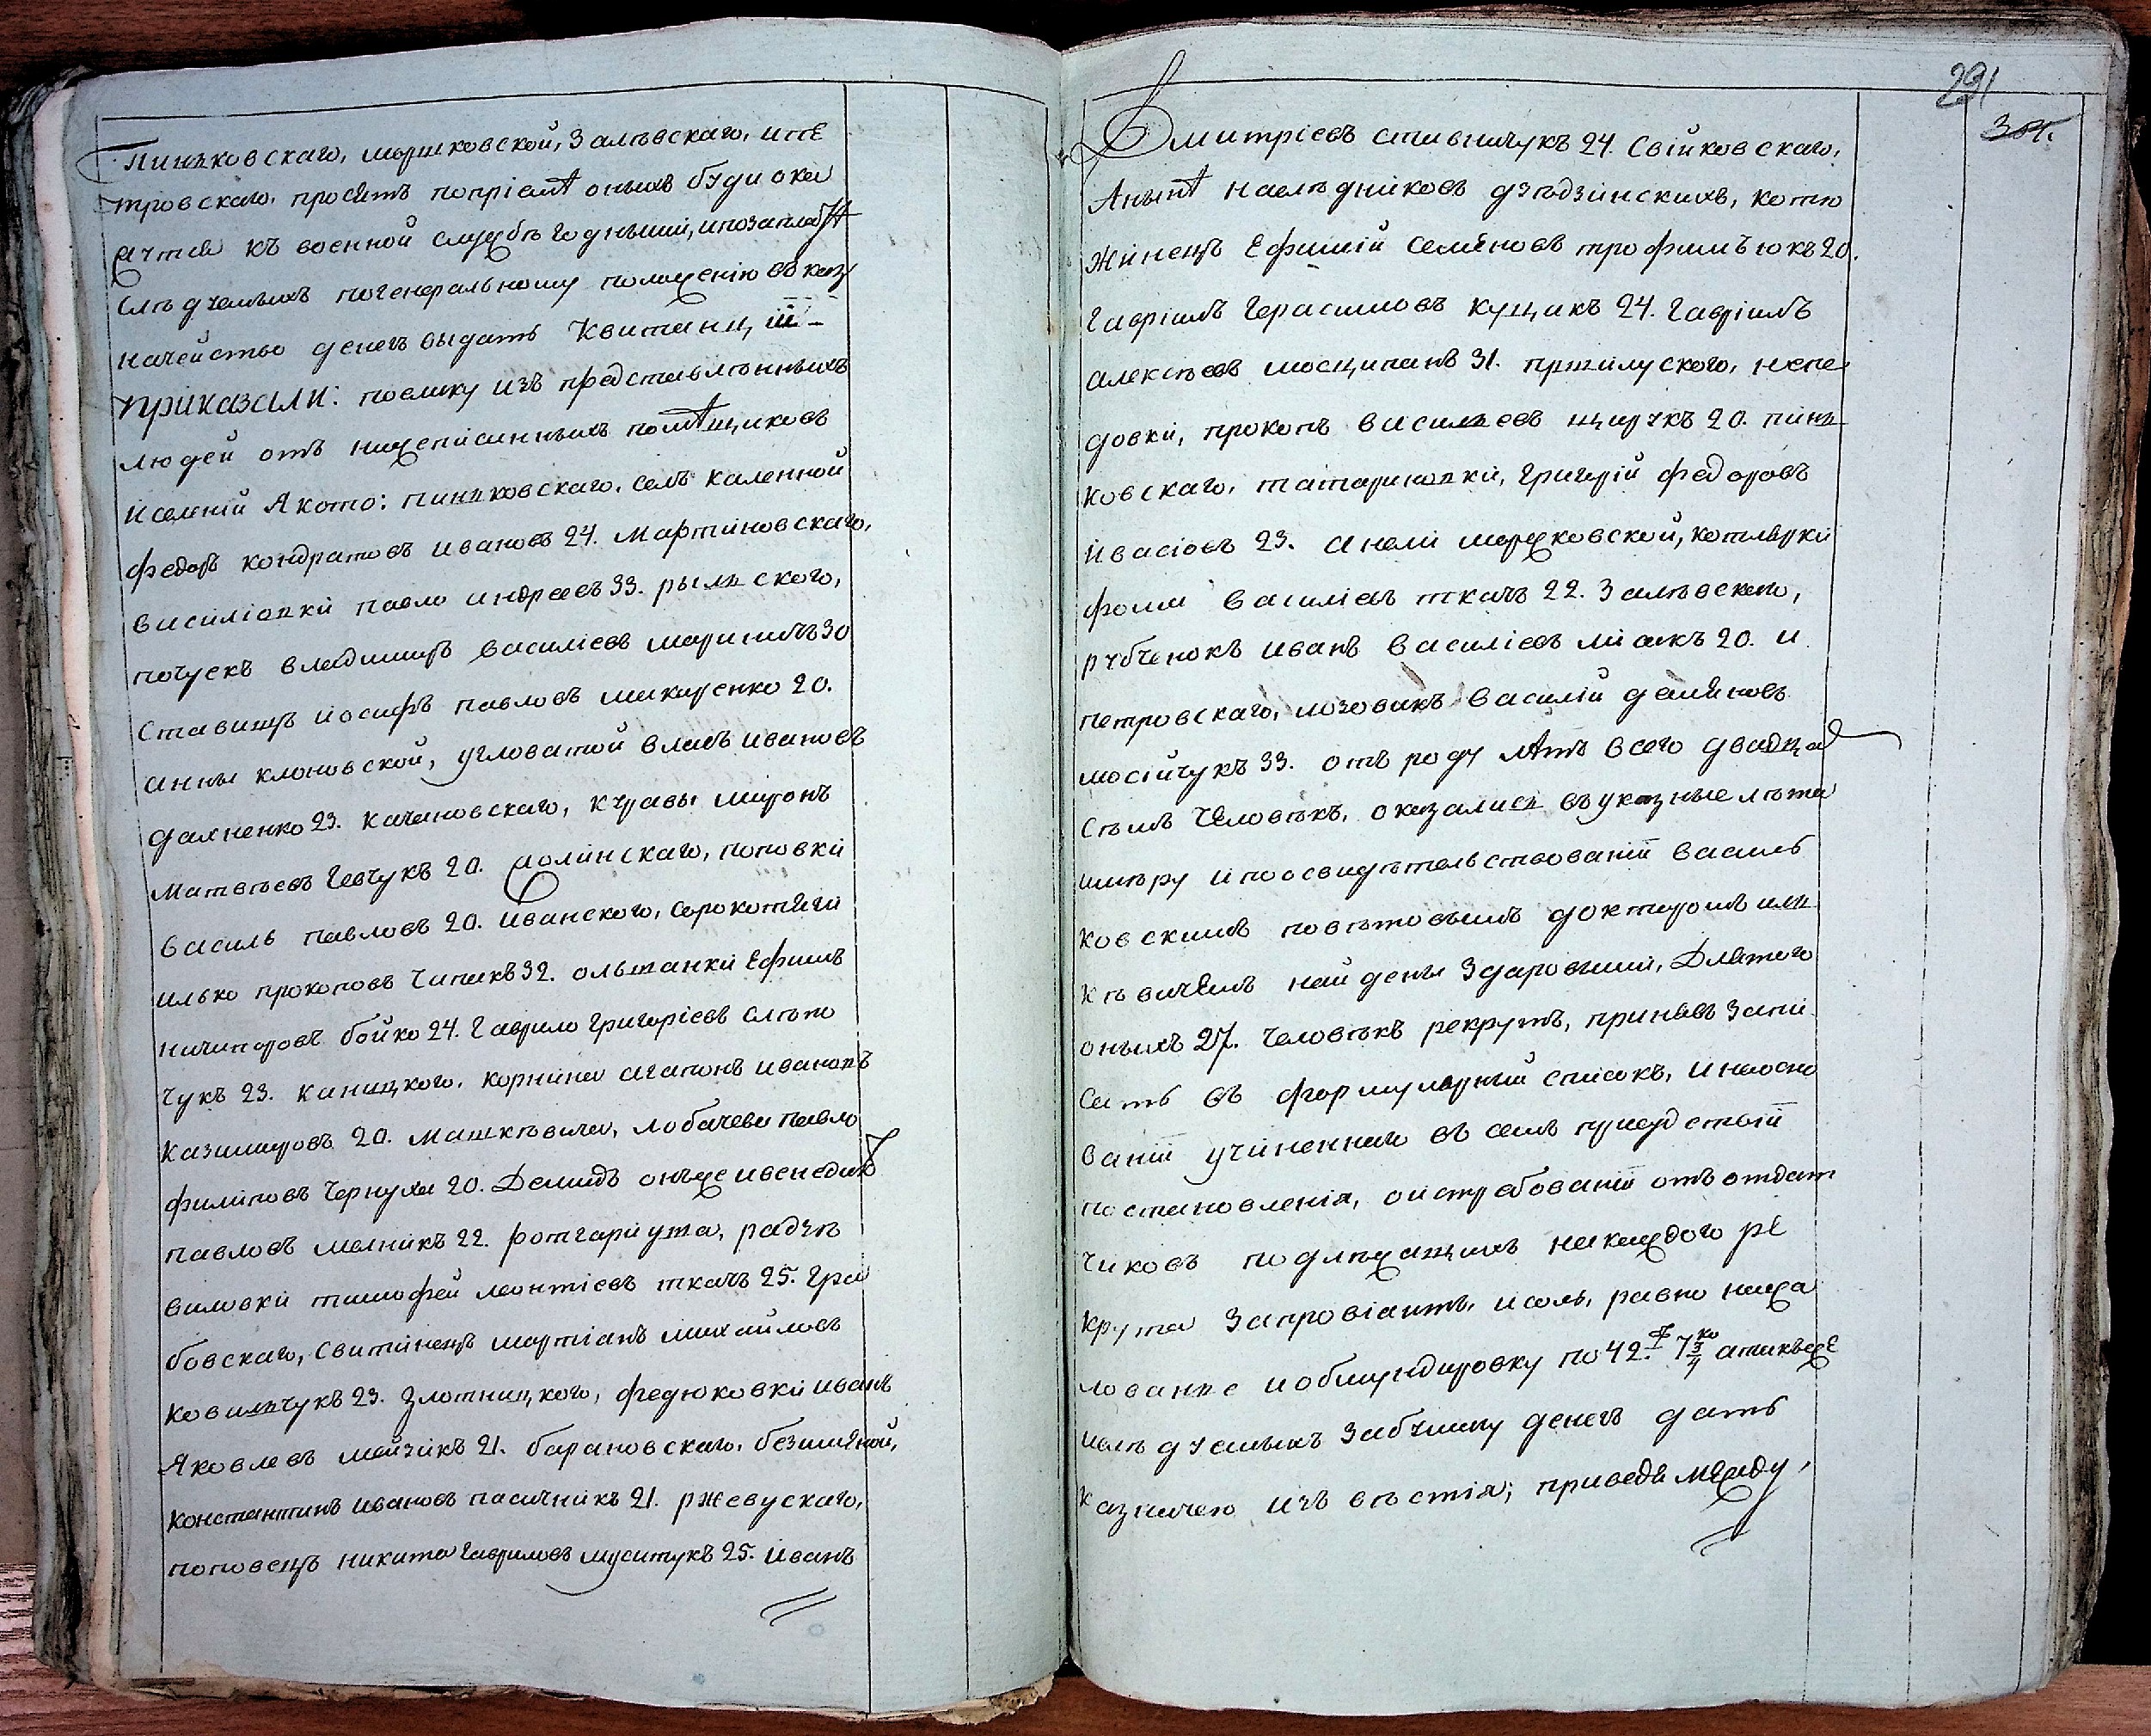 Пиньковскаго, моршковской, Залѣвскаго, ипе
тровскаго, просятъ попріемѣ оныхъ буди ока
жутся къ военной службѣ годными, ипозаплатѣ
слѣдуемыхъ погенеральному положенію въ каз
начейство денегъ выдать Квитанціи –
приказали: поелику изъ представлѣнныхъ
людей отъ нижеписанныхъ помѣщиковъ
иселеній Якото: пиньковскаго, селъ каленной
федоръ кондратовъ ивановъ 24. Мартиновскаго,
василіовки павло андреевъ 33. рыльского,
почуекъ владимиръ василіевъ мариничъ 30
Ставищъ иосифъ павловъ макаренко 20.
анны клоновской, угловатой власъ ивановъ
дахненко 23. качановскаго, кчравы миронъ
Матвѣевъ Гевчукъ 20. долинскаго, поповки
василь павловъ 20. иванского, сорокотяги
илько прокоповъ Чипакъ 32. ольшанки Ефимъ
ничипоровъ бойко 24. Гаврило григоріевъ слѣпо
чукъ 23. каницкого, корнина агапонъ ивановъ
казимировъ 20. Машкѣвича, лобачева павло
филиповъ Чернуха 20. Демидъ онъже ивенедикъ
павловъ мелникъ 22. ротгариута, радзѣ
виловки тимофей леонтіевъ ткачъ 25. Гра
бовскаго, свитинецъ мартіанъ михайловъ
ковальчукъ 23. Злотницкого, федюковки иванъ
Яковлевъ майзикъ 21. барановскаго, безимяной,
константинъ ивановъ пасичникъ 21. ржевускаго,
поповецъ никита Гавриловъ муситукъ 25. иванъ
291
304.
Дмитріевъ спивничукъ 24. Свійковскаго,
Анынѣ наслѣдниковъ дзѣдзинскихъ, котю
жинецъ Ефимій семяновъ трофимъюкъ 20.
Гавріилъ Герасимовъ куцикъ 24. Гавріилъ
алексѣевъ мосципанъ 31. пржилуского, непе
довки, прокопъ васильевъ щирукъ 20. пинь
ковскаго, татариновки, григорій федоровъ
ивасіовъ 23. анели моржковской, котлярки
фома василіевъ ткачъ 22. Залѣвского,
рубченокъ иванъ василіевъ лісакъ 20. и
петровскаго, лозовикъ василій демяновъ
мосійчукъ 33. отъ роду лѣтъ всего двадца
Сѣмь Человѣкъ, оказались въуказные лѣта
имѣру ипоосвидѣтельствованіи василь
ковскимъ повѣтовымъ докторомъ иль
кѣвичемъ найдены Здаровыми, Длятого
оныхъ 27. Человѣкъ рекрутъ, принявъ Запи
сать въ формулярный списокъ, инаосно
ваніи учиненнаго въ семъ присудствіи
постановленія, оистребованіи отъотдат
чиковъ подлѣжащихъ накаждого ре
крута Запровіантъ, исоль, равно нажа
лованье иобмундировку по 42. р 7 3/4 ко атакъже
ислѣдуемыхъ Забумагу денегъ дать
казначею изъвѣстія; приведя между,